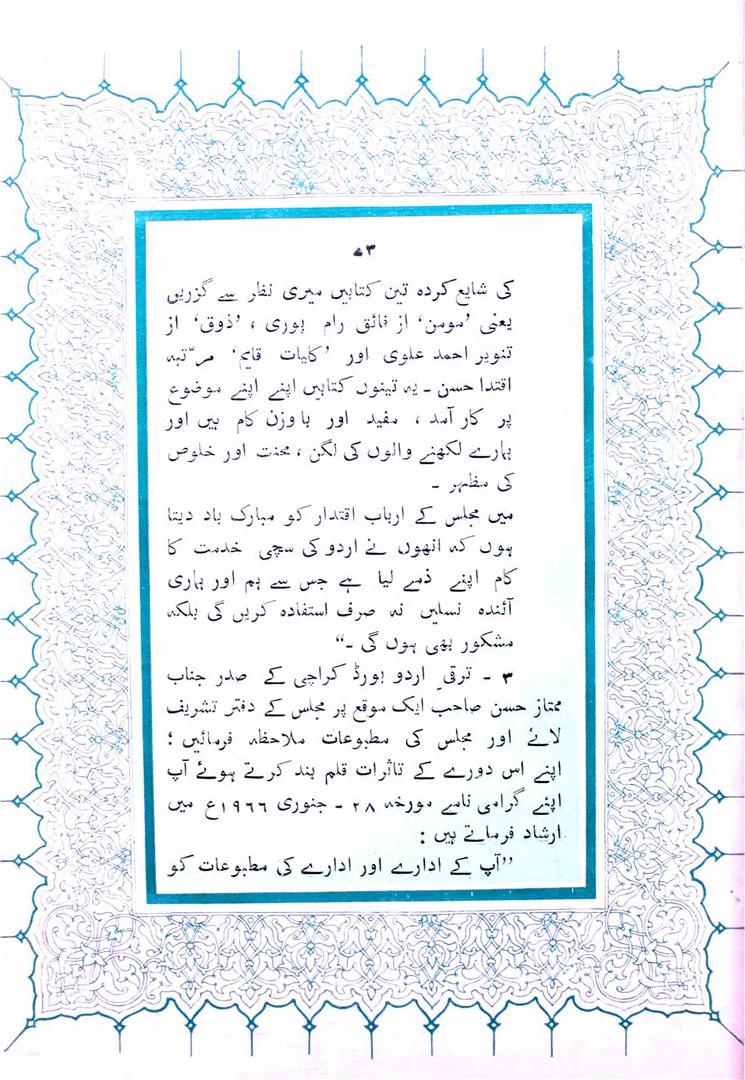 ۷۳
کی شایع کردہ تین کتابیں میری نظر سے گزریں
یعنی ’مومن‘ از فائق رام پوری ، ’ذوق‘ از
تنویر احمد علوی اور ’کلیات قایم‘ مرتّبہ
اقتدا حسن ۔ یہ تینوں کتابیں اپنے اپنے موضوع
پر کار آمد ، مفید اور با وزن کام ہیں اور
ہمارے لکھنے والوں کی لگن ، محنت اور خلوص
کی مظہر ۔
میں مجلس کے ارباب اقتدار کو مبارک باد دیتا
ہوں کہ انھوں نے اردو کی سچی خدمت کا
کام اپنے ذمے لیا ہے جس سے ہم اور ہماری
آئندہ نسلیں نہ صرف استفادہ کریں گی بلکہ
مشکور بھی ہوں گی ۔“
۳ ۔ ترقیِ اردو بورڈ کراچی کے صدر جناب
ممتاز حسن صاحب ایک موقع پر مجلس کے دفتر تشریف
لائے اور مجلس کی مطبوعات ملاحظہ فرمائیں ؛
اپنے اس دورے کے تاثرات قلم بند کرتے ہوئے آپ
اپنے گرامی نامے مورخہ ۲۸ ۔ جنوری ۱۹۶۶ع میں
ارشاد فرماتے ہیں :
”آپ کے ادارے اور ادارے کی مطبوعات کو